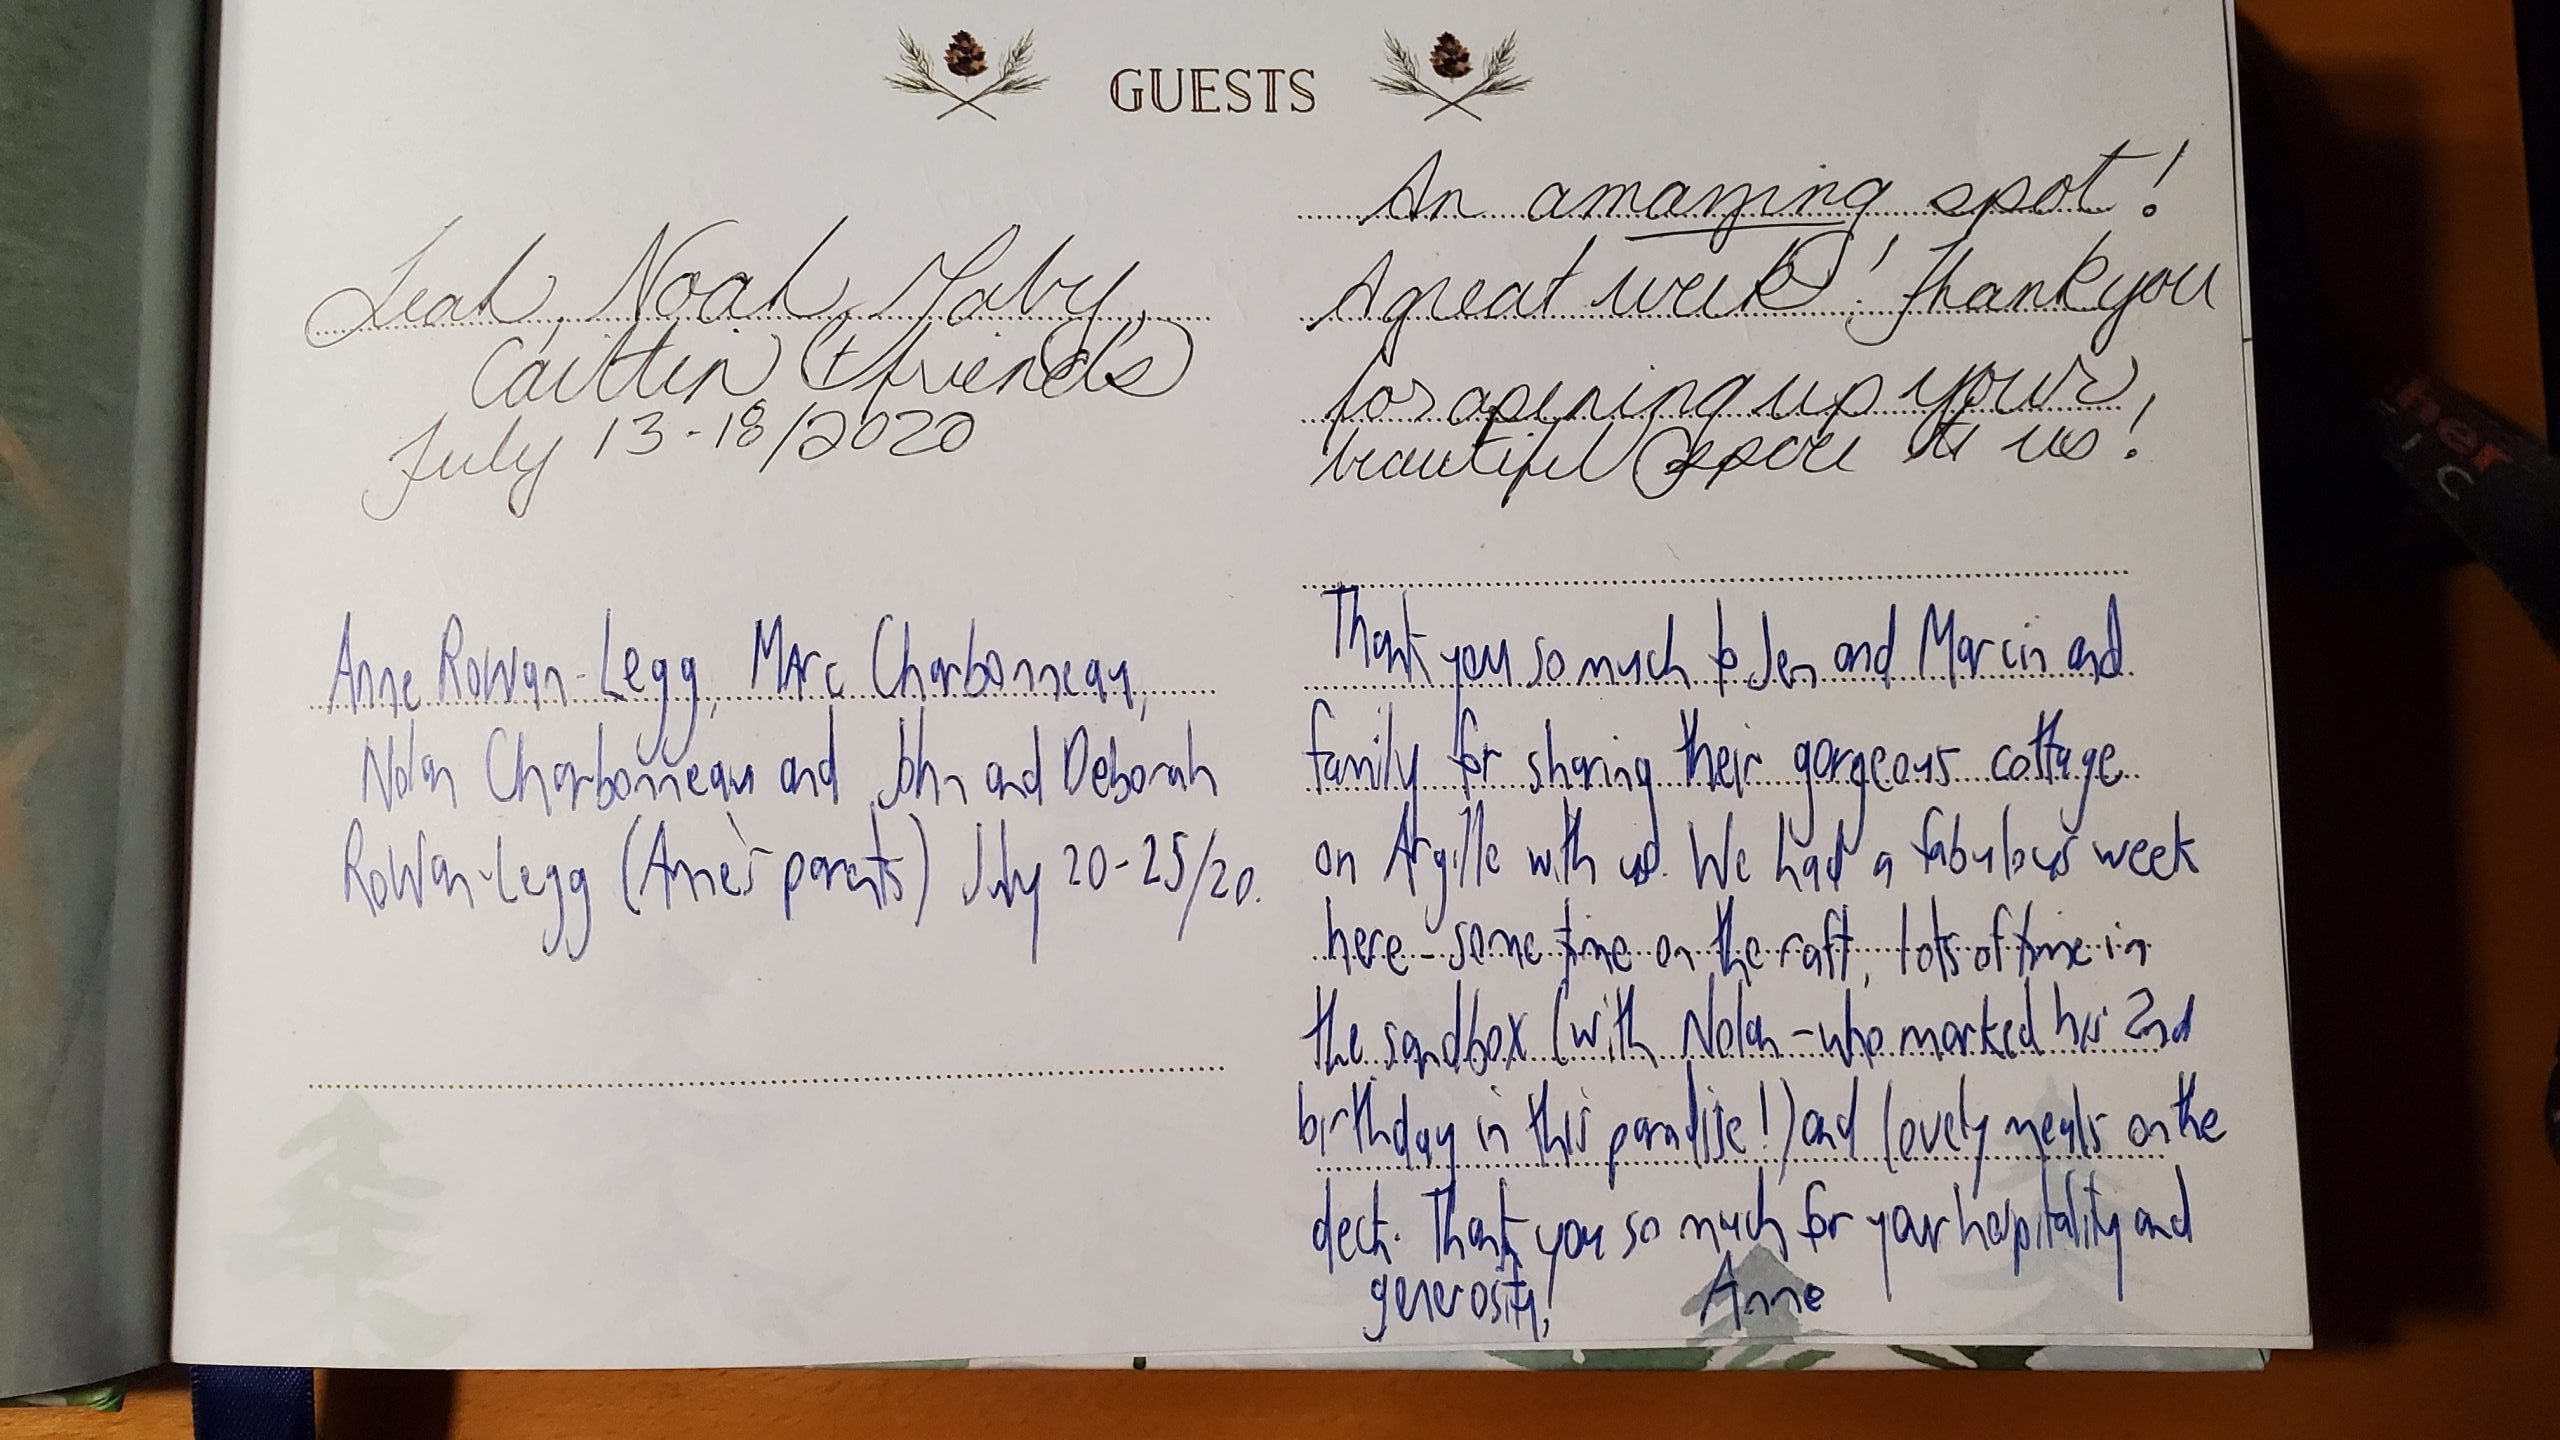 GUESTS
Leah, Noah, Gaby,
Caitlin (+ friends)
July 13-18/2020
An amazing spot!
A great week! Thank you
for opening up your
beautiful space to us!
Anne Rowan-Legg, Marc Charbonneau,
Nolan Charbonneau and John and Deborah
Rowan-Legg (Anne's parents) July 20-25/20.
Thank you so much to Jen and Marcin and
family for sharing their gorgeous cottage
on Argille with us. We had a fabulous week
here - some time on the raft, lots of time in
the sandbox (with Nolan - who marked his 2nd
birthday in this paradise!) and lovely meals on the
deck. Thank you so much for your hospitality and
generosity, Anne
her
IC